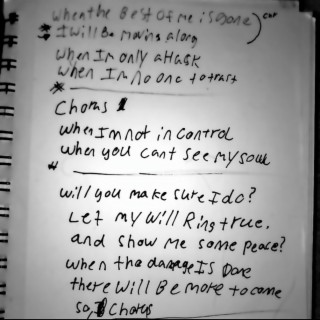 when the Best of me is gone) cut
I will Be moving along
when Im only a Husk
when Im no one to trust
Chorus 1
when Im not in control
when you cant see my soul
will you make sure I do?
Let my will Ring true.
and show me some peace?
when the damage IS Done
there will Be more to come
so, Chorus